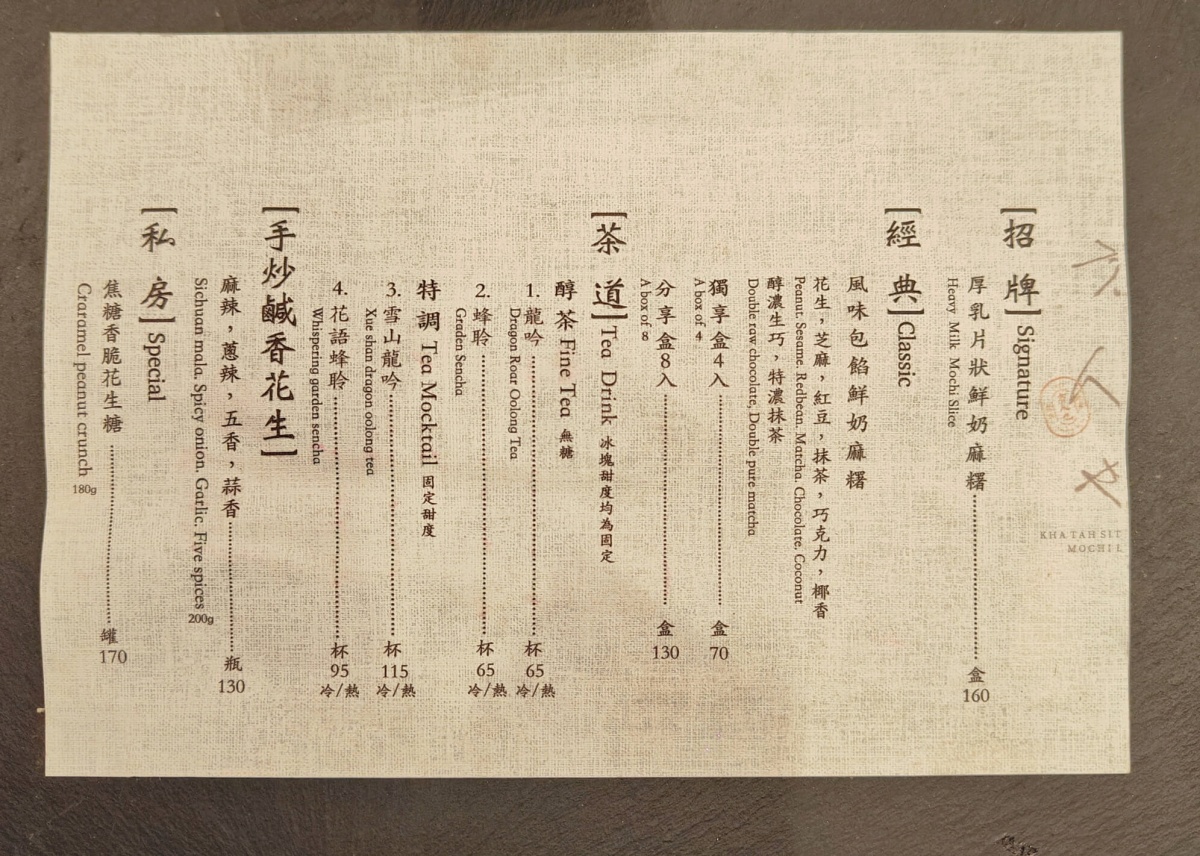 KHA TAH SIT
MOCHI
[招牌] Signature
厚乳片狀鮮奶麻糬 盒 160
Heavy Milk Mochi Slice
[經典] Classic
風味包餡鮮奶麻糬
花生，芝麻，紅豆，抹茶，巧克力，椰香
Peanut. Sesame. Redbean. Matcha. Chocolate. Coconut
醇濃生巧，特濃抹茶
Double raw chocolate, Double pure matcha
獨享盒4入 盒 70
A box of 4
分享盒8入 盒 130
A box of 8
[茶道] Tea Drink 冰塊甜度均為固定
醇茶 Fine Tea 無糖
1. 龍吟 杯 65 冷/熱
Dragon Roar Oolong Tea
2. 蜂聆 杯 65 冷/熱
Graden Sencha
特調 Tea Mocktail 固定甜度
3. 雪山龍吟 杯 115 冷/熱
Xue shan dragon oolong tea
4. 花語蜂聆 杯 95 冷/熱
Whispering garden sencha
[手炒鹹香花生]
麻辣，蔥辣，五香，蒜香 瓶 130
Sichuan mala. Spicy onion. Garlic. Five spices 200g
[私房] Special
焦糖香脆花生糖 罐 170
Craramel peanut crunch 180g